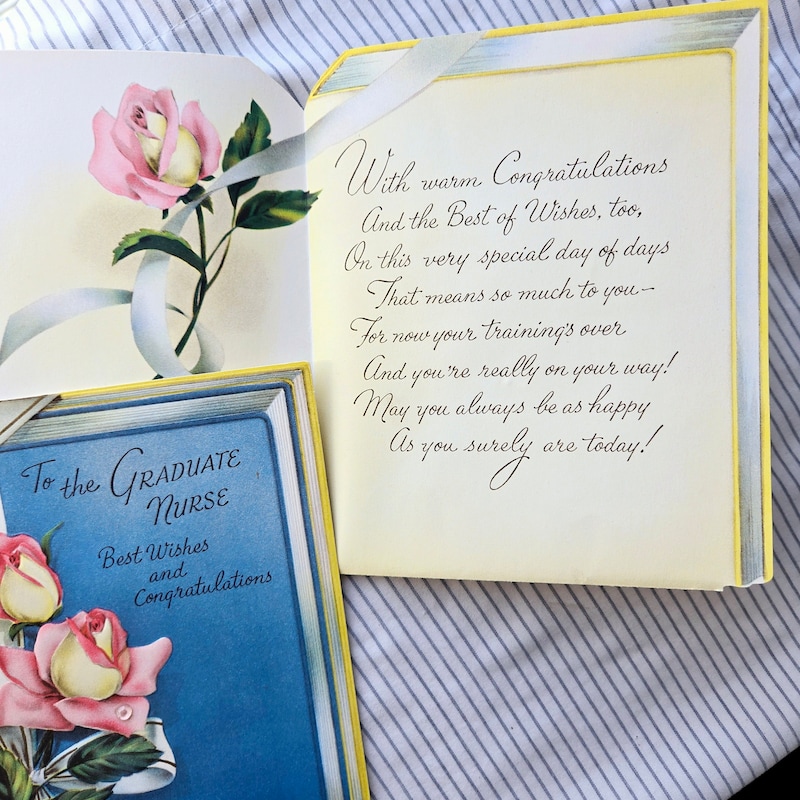 With warm Congratulations
And the Best of Wishes, too,
On this very special day of days
That means so much to you—
For now your training's over
And you're really on your way!
May you always be as happy
As you surely are today!
To the GRADUATE
NURSE
Best Wishes
and
Congratulations